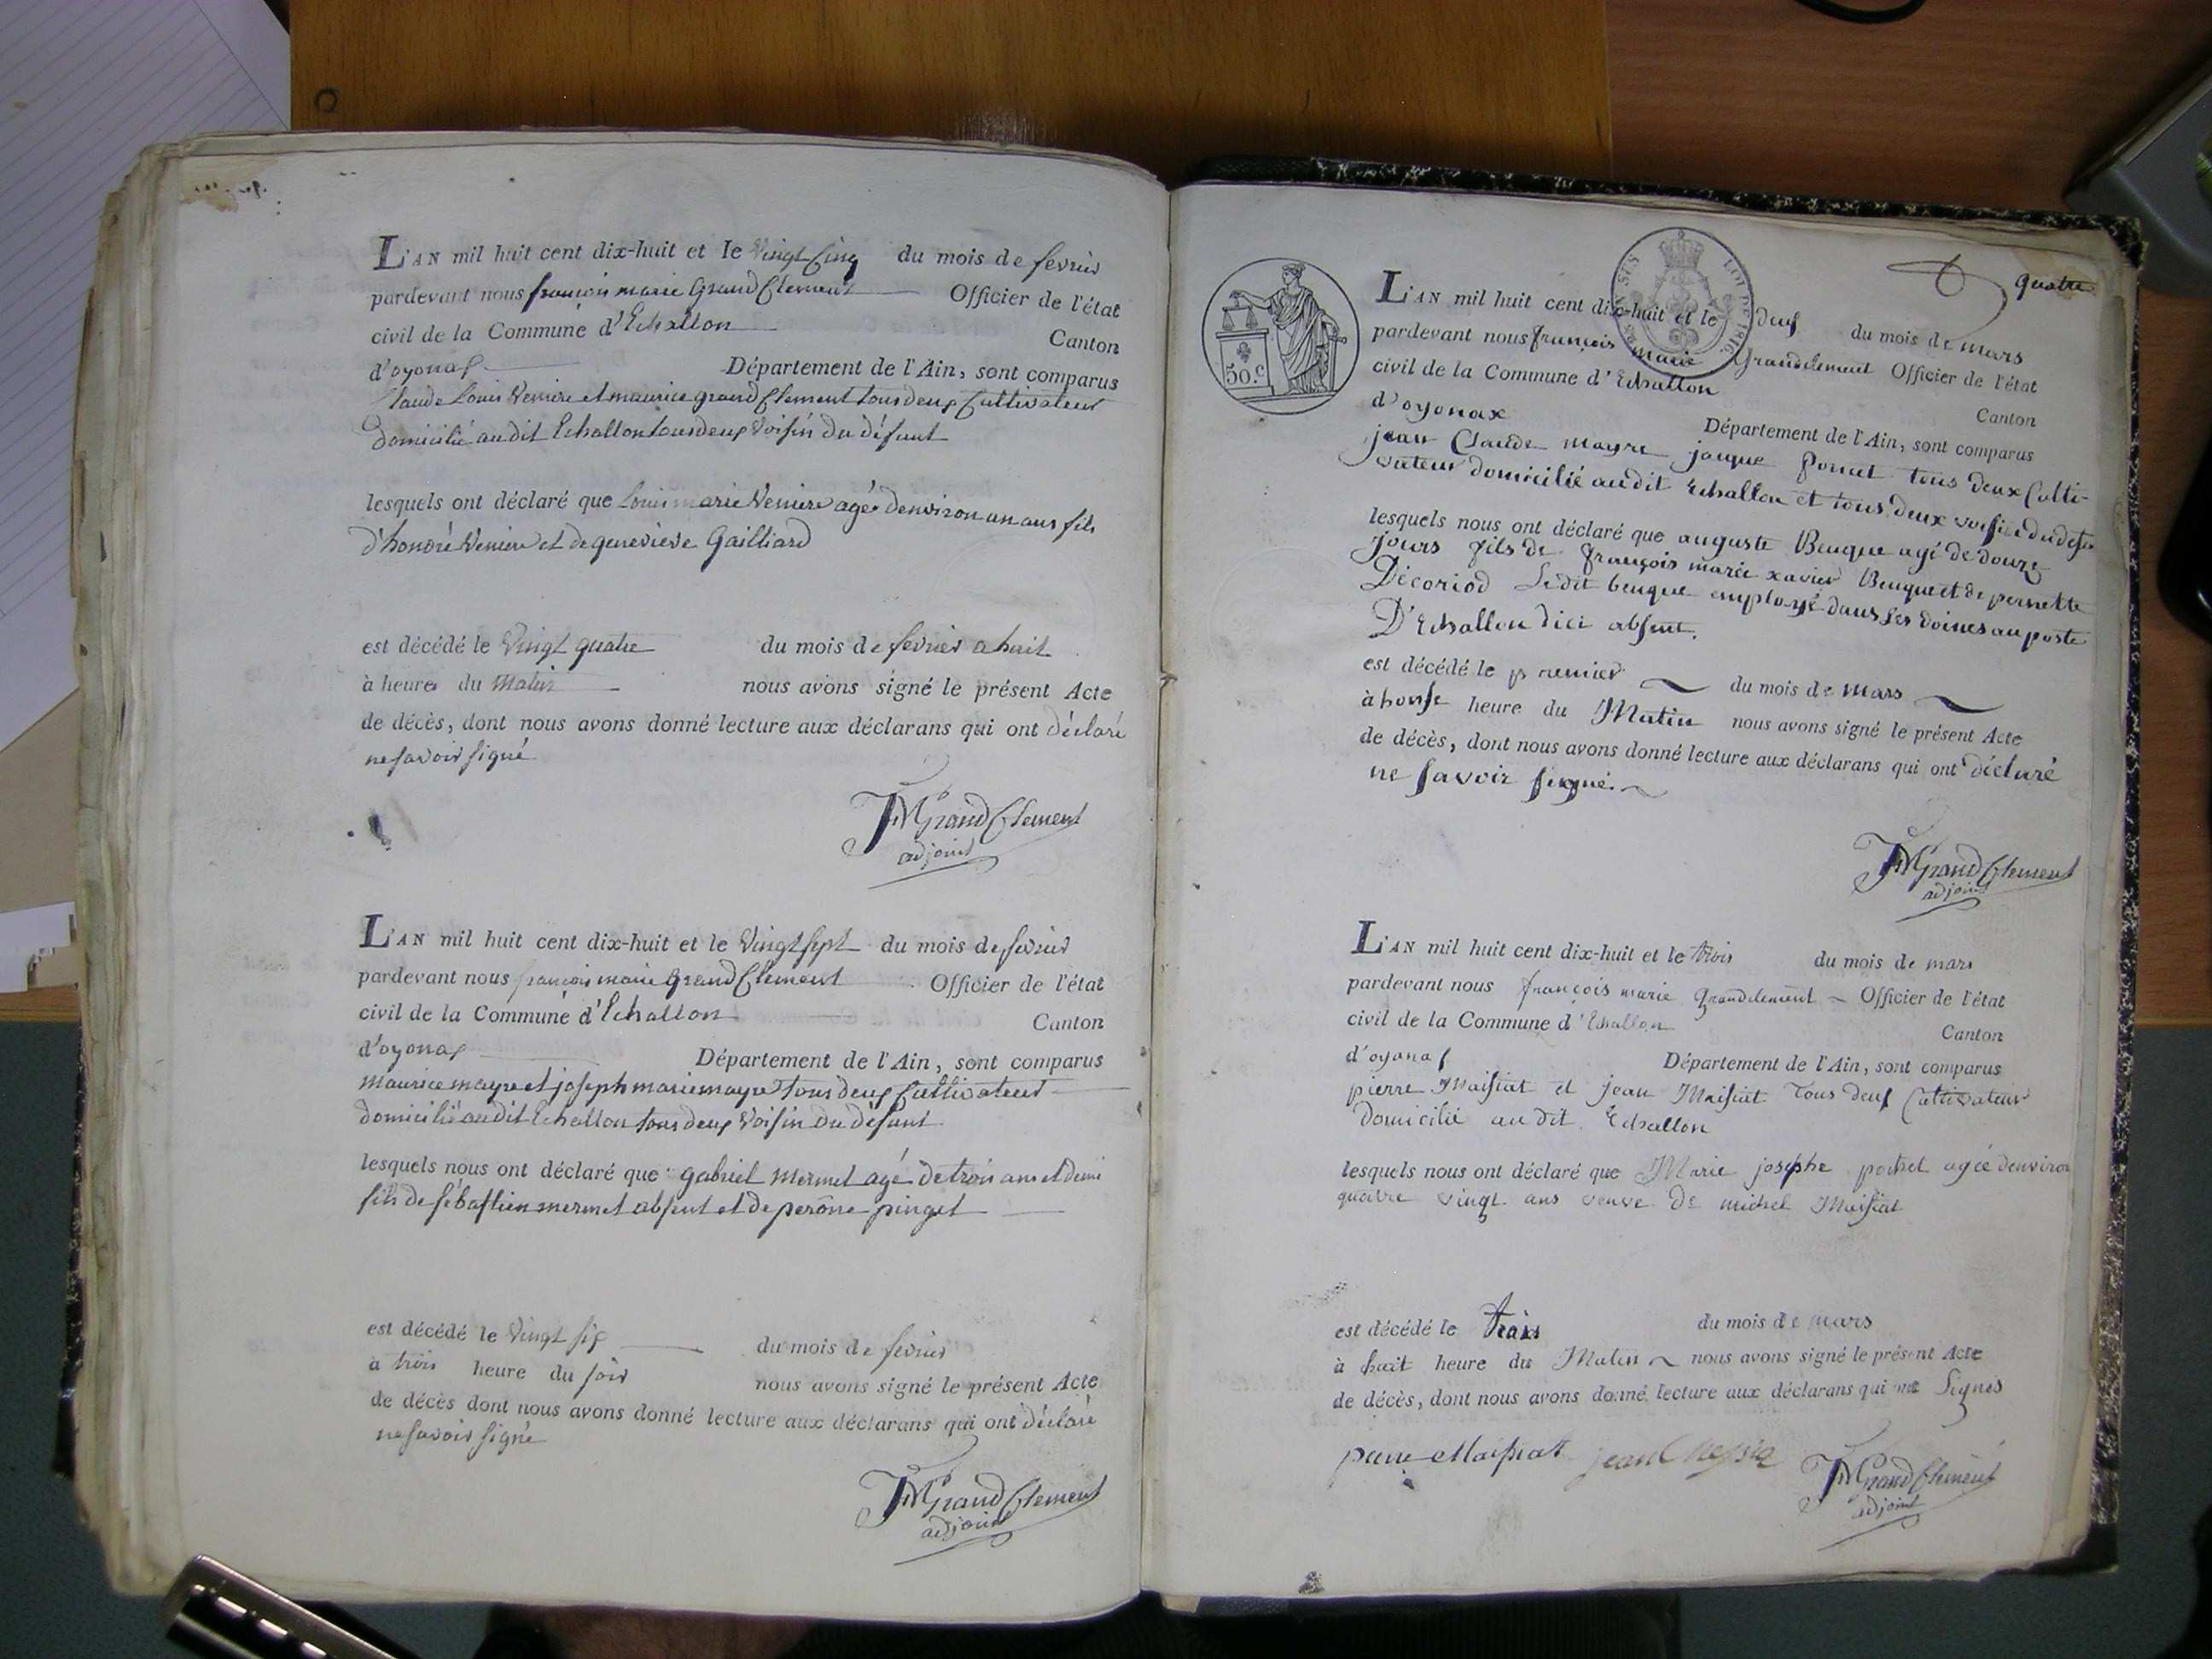 L'AN mil huit cent dix-huit et le vingt Cinq du mois de fevrier
pardevant nous françois marie Grand Clement Officier de l'état
civil de la Commune d'Echallon
Canton
d'oyonax Département de l'Ain, sont comparus
Claude Louis Veniere et maurice grand Clement tous deux Cultivateur
domicilié au dit Echallon tous deux Voisin du défunt
lesquels ont déclaré que Louis marie Veniere agé denviron un ans fils
d'honoré Veniere et de geneviève Gailliard
est décédé le Vingt quatre du mois de fevrier a huit
à heures du Matin nous avons signé le présent Acte
de décès, dont nous avons donné lecture aux déclarans qui ont déclaré
ne savoir signé
FM Grand Clement
adjoint
L'AN mil huit cent dix-huit et le Vingt sept du mois de fevrier
pardevant nous françois marie Grand Clement Officier de l'état
civil de la Commune d'Echallon
Canton
d'oyonax Département de l'Ain, sont comparus
Maurice mayre et joseph marie mayre tous deux Cultivateur
domicilié au dit Echallon tous deux Voisin du défunt
lesquels nous ont déclaré que gabriel Mermet agé de trois ans et demi
fils de sébastien mermet absent et de perône pinget
est décédé le Vingt six du mois de fevrier
à trois heure du soir nous avons signé le présent Acte
de décès dont nous avons donné lecture aux déclarans qui ont déclaré
ne savoir signé
FM Grand Clement
adjoint
quatre
50.c
LOI DE 1816.
L'AN mil huit cent dix-huit et le deux du mois de mars
pardevant nous françois marie Grandclement Officier de l'état
civil de la Commune d'Echallon
Canton
d'oyonax Département de l'Ain, sont comparus
jean Claude mayre jacque poncet tous deux Culti-
vateur domicilié au dit Echallon et tous deux voisin du defun
lesquels nous ont déclaré que auguste Beuque agé de douze
jours fils de françois marie xavier Beuque et de pernette
Décoriod Ledit beuque employé dans les doines au poste
D'Echallon dici absent.
est décédé le premier du mois de mars
à honse heure du Matin nous avons signé le présent Acte
de décès, dont nous avons donné lecture aux déclarans qui ont déclaré
ne savoir signé.
FM Grand Clement
adjoint
L'AN mil huit cent dix-huit et le trois du mois de mars
pardevant nous françois marie Grandclement Officier de l'état
civil de la Commune d'Echallon
Canton
d'oyonax Département de l'Ain, sont comparus
pierre Maissiat et jean Maissiat Tous deux Cultivateur
Domicilié au dit Echallon
lesquels nous ont déclaré que Marie josephe agée denviron
quatre vingt ans veuve de michel Maissiat
est décédé le trois du mois de mars
à huit heure du Matin nous avons signé le présent Acte
de décès, dont nous avons donné lecture aux déclarans qui ont Signés
pierre Maissiat jean FM Grand Clement
adjoint